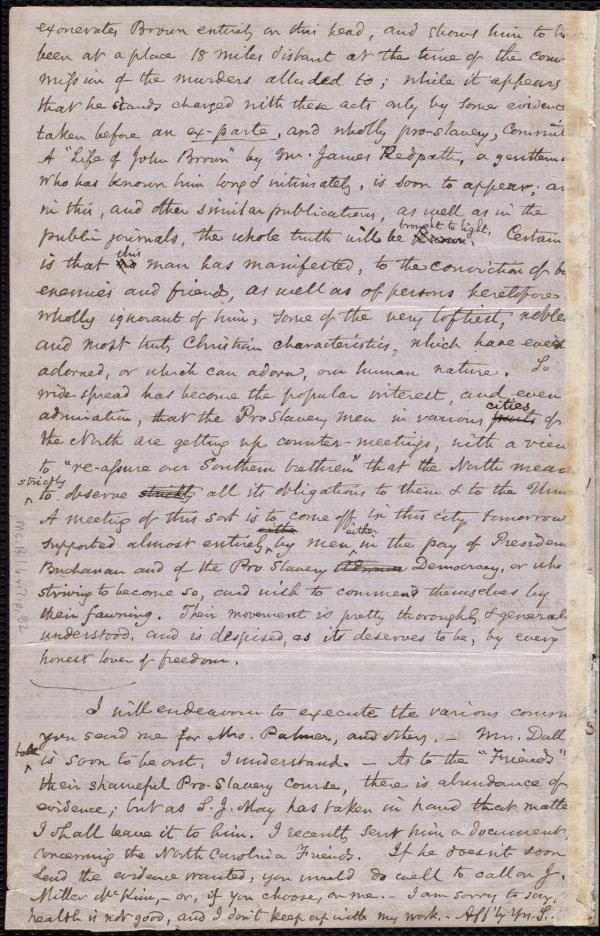 exonerates Brown entirely on this head, and shows him to h
been at a place 18 miles distant at the time of the com
mission of the murders alluded to; while it appears
that he stands charged with these acts only by some evidenc
taken before an ex-parte, and wholly pro-slavery, Commit
A "Life of John Brown" by Mr. James Redpath, a gentlem
who has known him long & intimately, is soon to appear; an
in this, and other similar publications, as well as in the
public journals, the whole truth will be brought to light. Certain
is that this man has manifested, to the conviction of b
enemies and friends, as well as of persons heretofore
wholly ignorant of him, some of the very loftiest, nobles
and most truly Christian characteristics, which have ever
adorned, or which can adorn, our human nature. So
wide spread has become the popular interest, and even
admiration, that the Pro Slavery men in various cities of
the North are getting up counter-meetings, with a view
to "re-assure our Southern brethren" that the North mean
strictly
to observe strictly all its obligations to them & to the Unio
A meeting of this sort is to come off in this city tomorrow
supported almost entirely by men either in the pay of Presiden
Buchanan and of the Pro Slavery Democracy, or who
striving to become so, and wish to commend themselves by
their fawning. Their movement is pretty thoroughly & general
understood, and is despised, as its deserves to be, by every
honest lover of freedom.
I will endeavor to execute the various comm
you send me for Mrs. Palmer, and others. – Mrs. Dall
book
is soon to be out, I understand. – As to the "Friends"
their shameful Pro-Slavery course, there is abundance of
evidence; but as S. J. May has taken in hand that matte
I shall leave it to him. I recently sent him a document,
concerning the North Carolina Friends. If he doesn't soon
send the evidence wanted, you would do well to call on J.
Miller McKim, – or, if you choose, on me. – I am sorry to say,
health is not good, and I don't keep up with my work. – Aff'ly Yrs. S.
Ms. B.1.6 v.7, p. 82